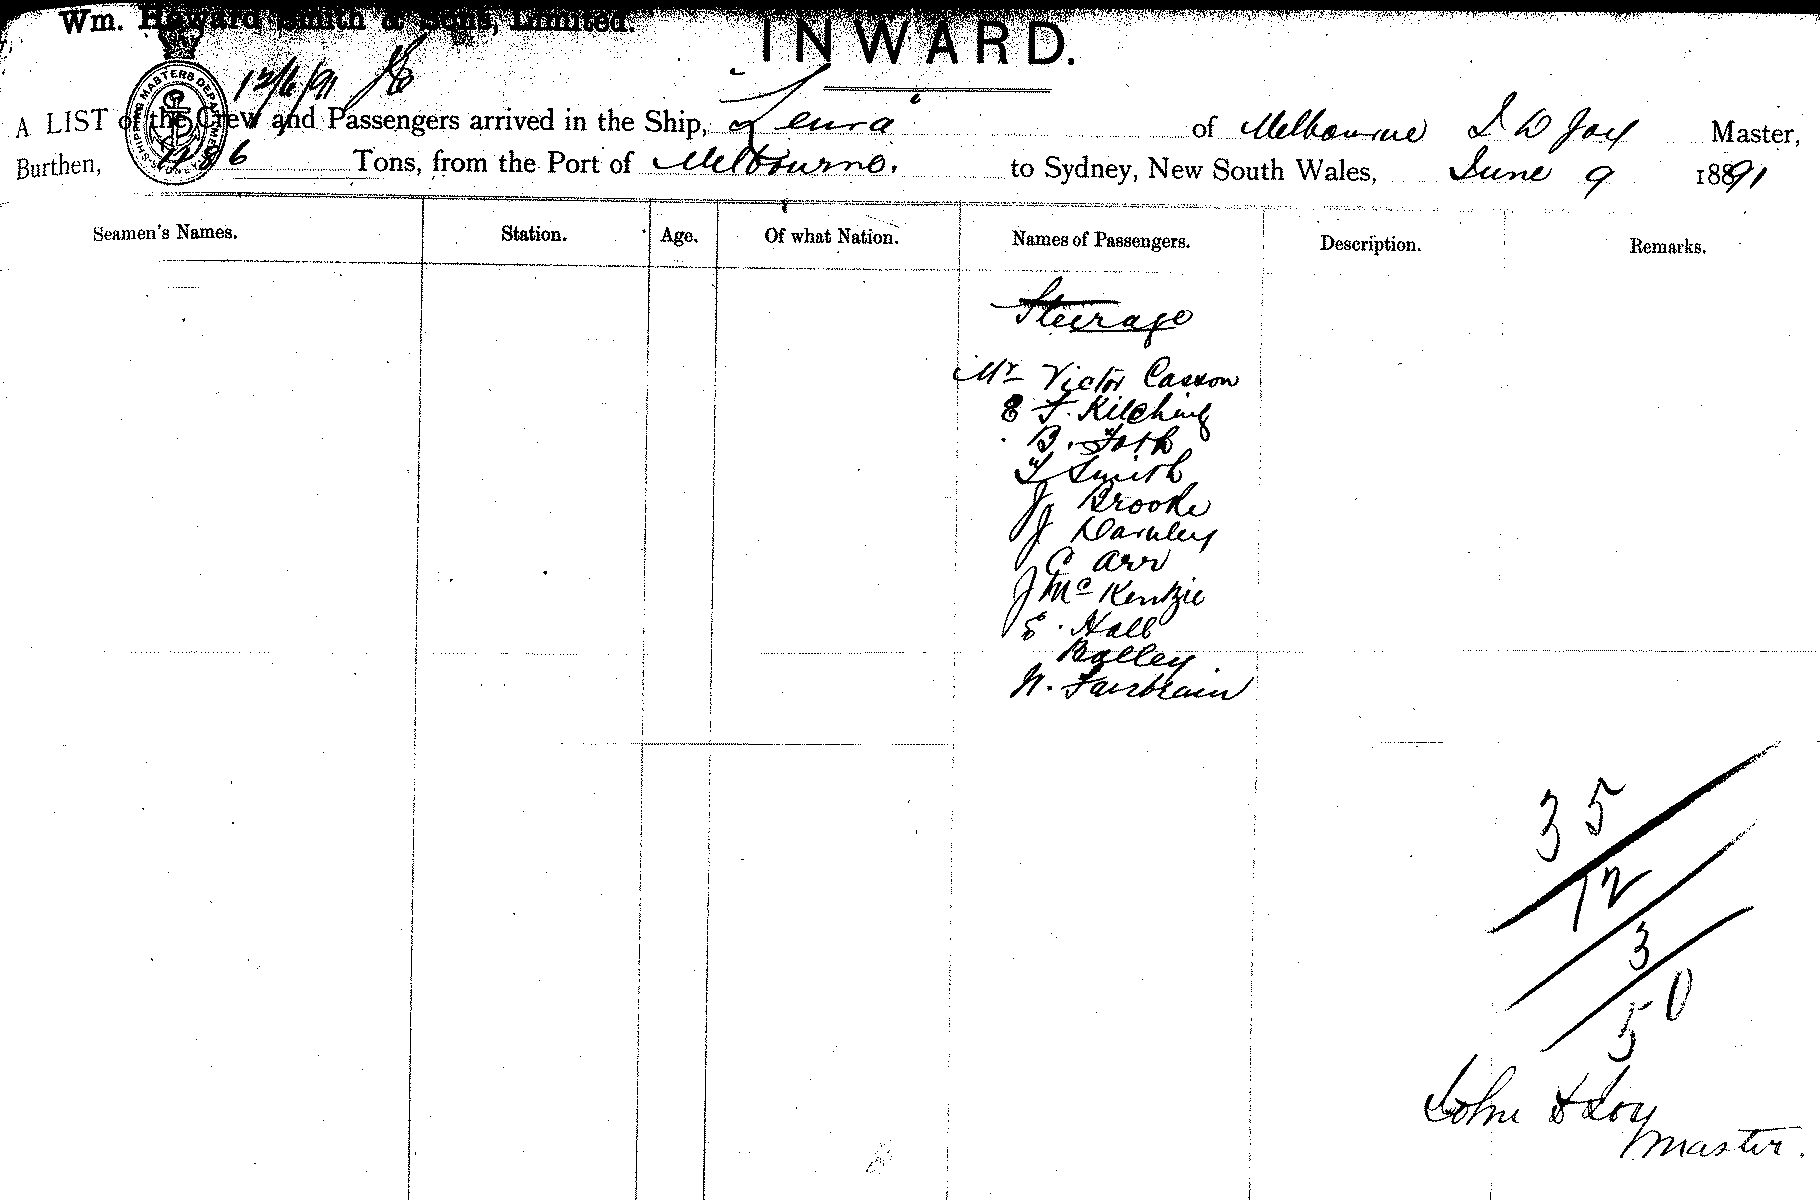 Wm. Howard Smith & Sons, Limited.
INWARD.
12/6/91
A LIST of the Crew and Passengers arrived in the Ship, Leura of Melbourne J D Joy Master,
Burthen, 1186 Tons, from the Port of Melbourne. to Sydney, New South Wales, June 9 1891
Seamen's Names. Station. Age. Of what Nation. Names of Passengers. Description. Remarks.
Steerage
Mr Victor Casson
E F. Kilching
B. Foth
T Smith
J Brooke
J Darnley
C Arr
J McKenzie
E. Hall
Balley
N. Fairbrain
35
12
3
50
John D Joy
Master.